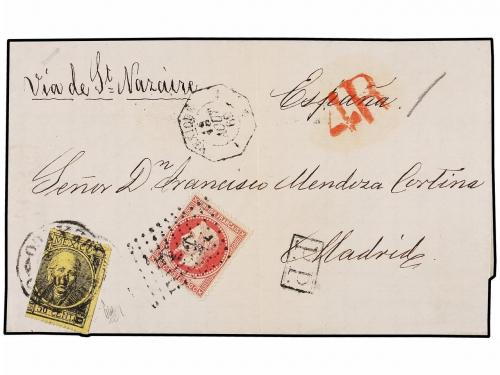 Vía de St. Nazaire
España
4R
Señor Dn. Francisco Mendoza Cortina
Madrid
P.P.
MEXICO
50 CENT